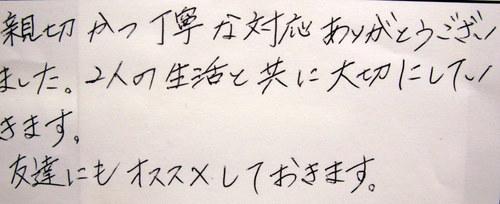 親切かつ丁寧な対応ありがとうござい
ました。2人の生活と共に大切にしてい
きます。
友達にもオススメしておきます。